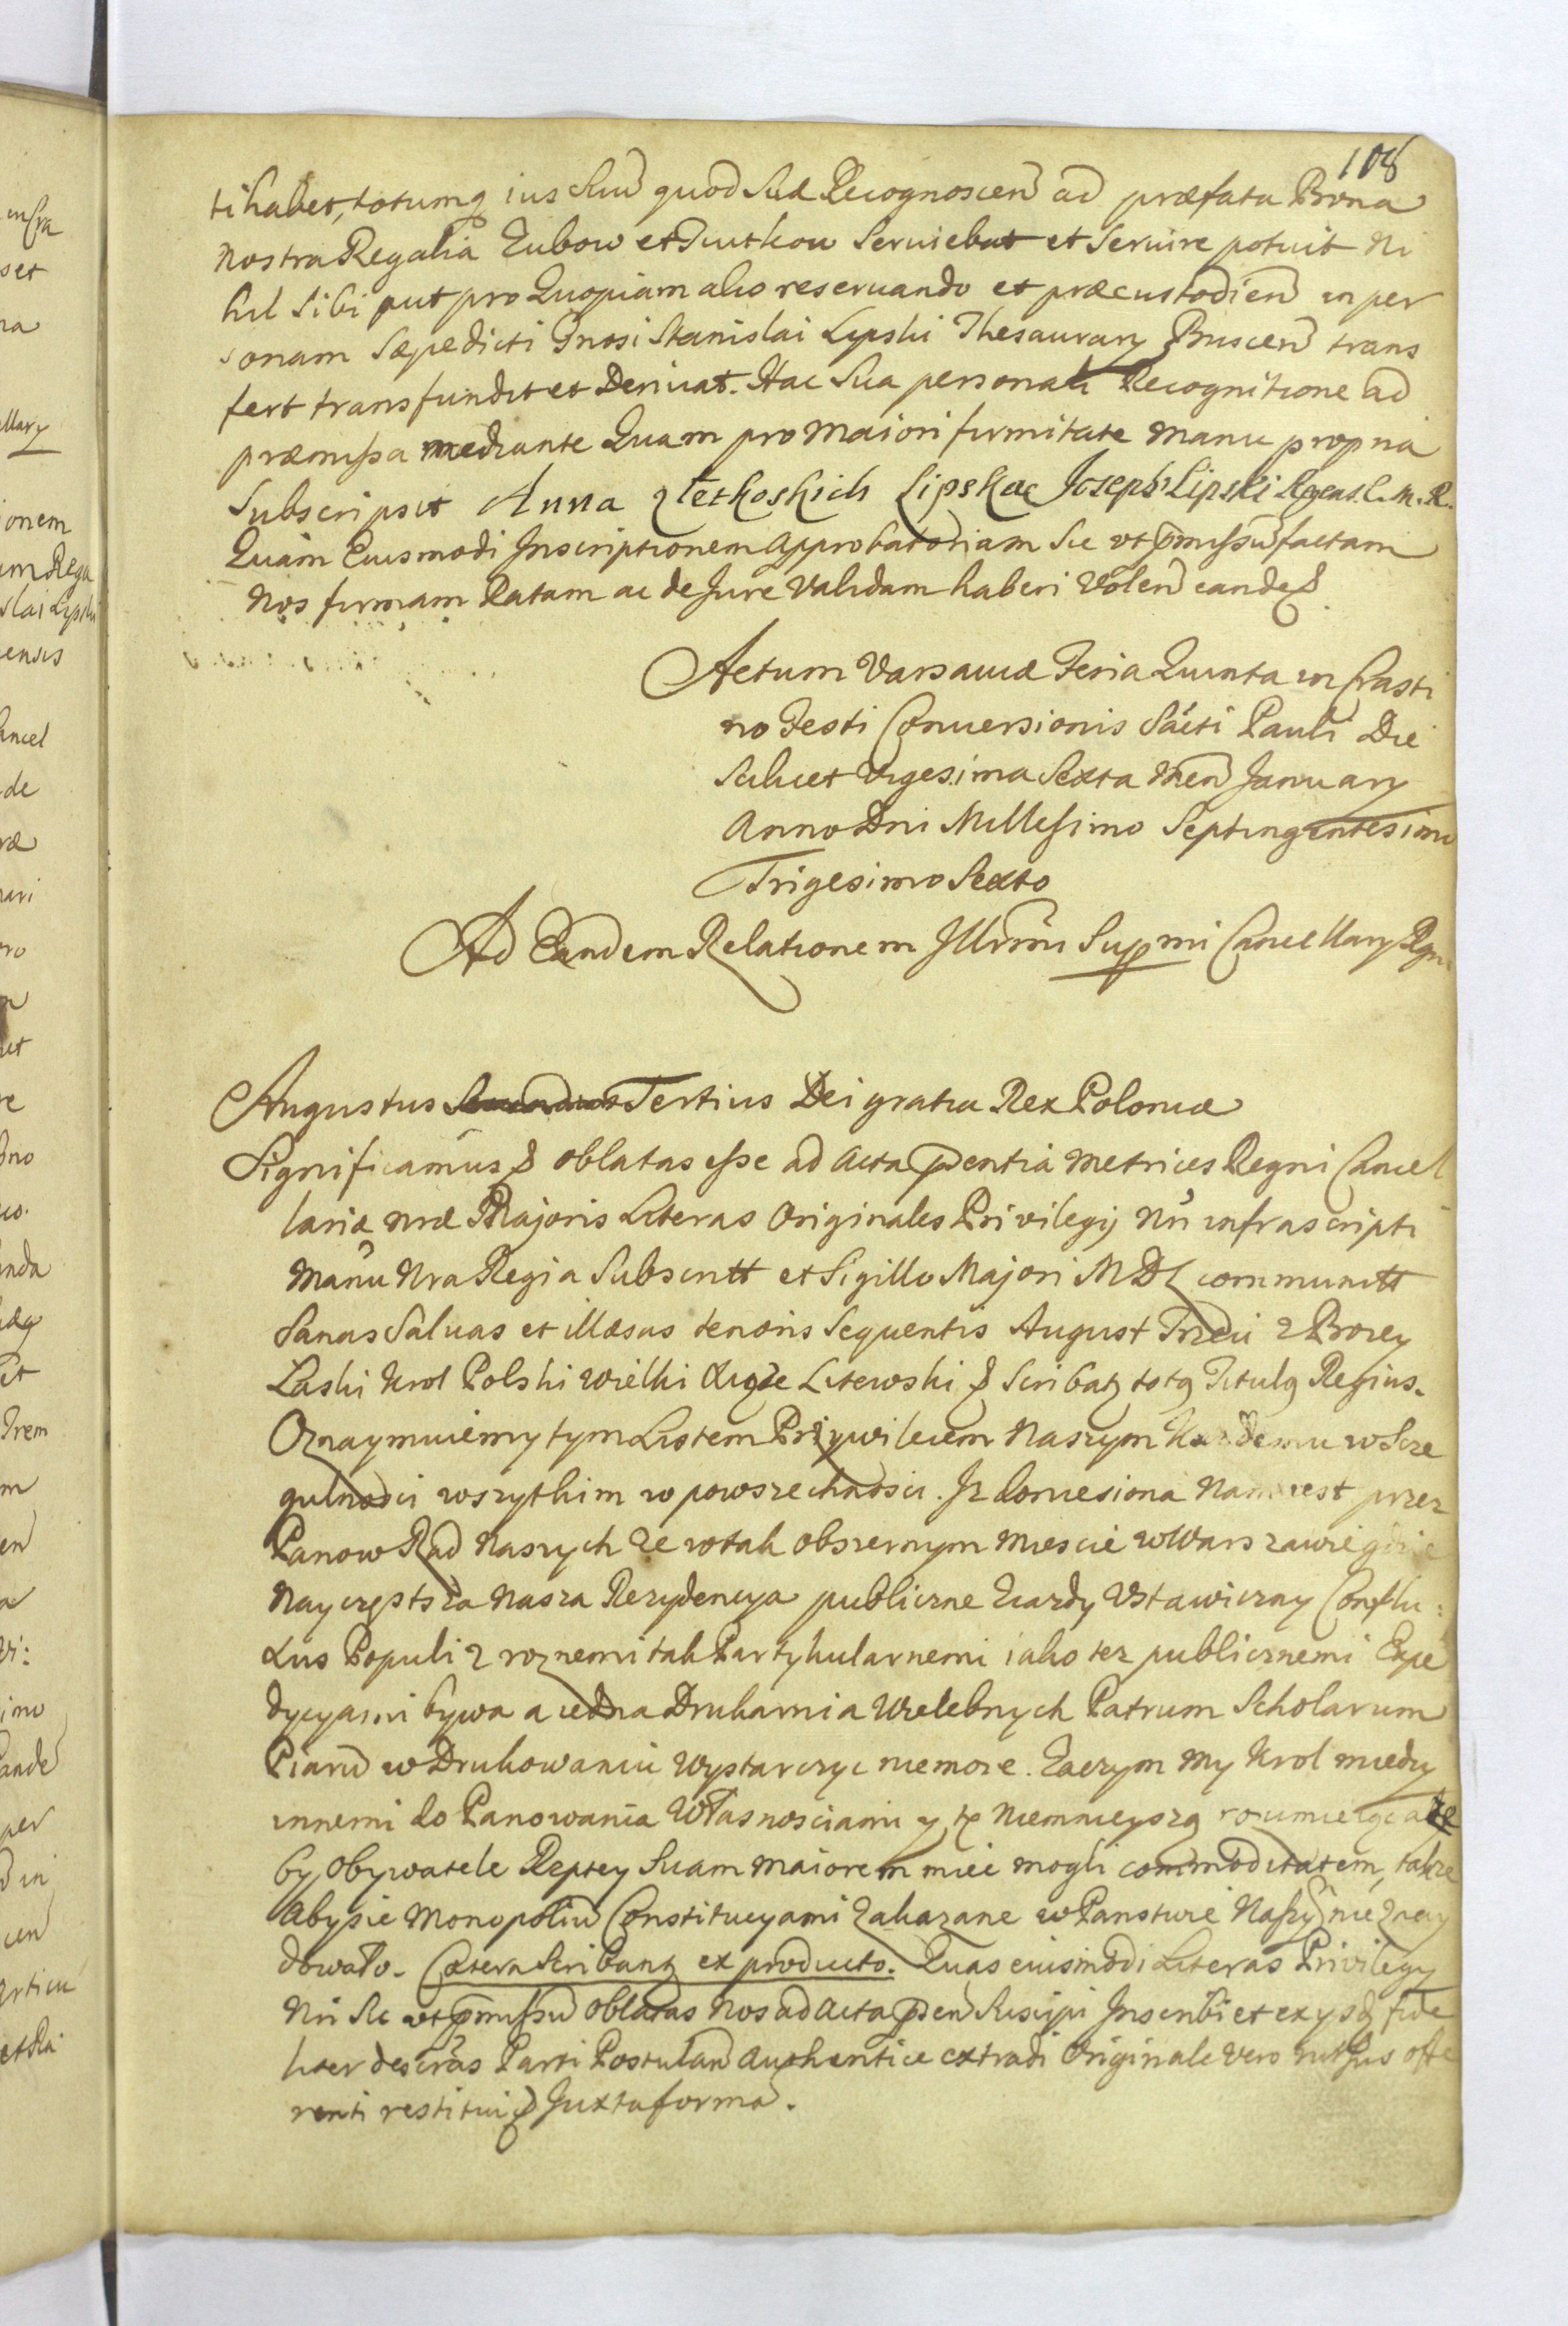 108
tihabet, totumq ius Suu quod Suæ Recognoscen ad præfata Bona
nostra Regalia Zubow et Trutkow Seruiebat et Seruire potuit Ni
hil Sibi aut pro Quopiam alio reseruando et præcustodien in per
sonam Sæpedicti Gnosi Stanislai Lipski Thesaurary Buscen trans
fert transfundit et Deriuat. Hac Sua personali Recognitione ad
præmissa mediante Quam pro maiori firmitate manu propria
Subscripsit Anna Lipskae Joseph Lipski Rgens. C. M. R.
Quam Eiusmodi Inscriptionem approbatoriam Sic vt pmissu factam
Nos firmam Ratam ac de Jure Validam haberi Volen eande &
Actum Varsauiæ Feria Quinta in Crasti
no Festi Conuersionis Sacti Pauli Die
Scilicet Vigesima Sexta Men January
Anno Dni Millesimo Septingentesimo
Trigesimo Sexto
Ad Eandem Relationem Illrmi Supmi Cancellary Rgni
Augustus Secundus Tertius Dei gratia Rex Poloniæ
Significamus & oblatas esse ad acta pentia metrices Regni Cancel
lariæ nræ Majoris Literas Originales Privilegij Nri infrascripti
manu Nra Regia Subscritt et Sigillo Majori MDL communitt
Sanas Saluas et illæsas tenoris Sequentis August Trzeci z Bozey
Laski Krol Polski Wielki Xiąże Litewski & Scribatz totq Titulq Regius.
Oznaymuiemy tym Listem Przywileiem Naszym Kazdemu w Szcze
gulnosci wszytkim w powszechnosci. Jz doniesiona Nam iest przez
Panow Rad Naszych Ze w tak obszernym miescie w Warszawie gdzie
Nayczęstsza Nasza Rezydencya publiczne Ziazdy Vstawiczny Conflu:
xus Populi z roznemi tak Partykularnemi iako tez publicznemi Expe
dycyami bywa a iedna Drukarnia Wielebnych Patrum Scholarum
Piaru w Drukowaniu Wystarczyc niemoze. Zaczym My Krol miedzy
innemi do Panowania Własnosciami y tę Niemnieyszą rozumieiąc aże
by Obywatele Rzptey Suam maiorem miec mogli commoditatem, takze
Abysie Monopoliu Constitucyami Zakazane w Panstwie Naszy nie Znay
dowało. Cætera Scribantz ex producto. Quas eiusmodi Literas Privilegy
Nri Sic vt pmissu oblatas Nos ad acta psen Suscipi Inscribi et ex ysdę fide
liter descras Parti Postulan authentice extradi Originale vero rursus offe
renti restitui & Juxta forma.